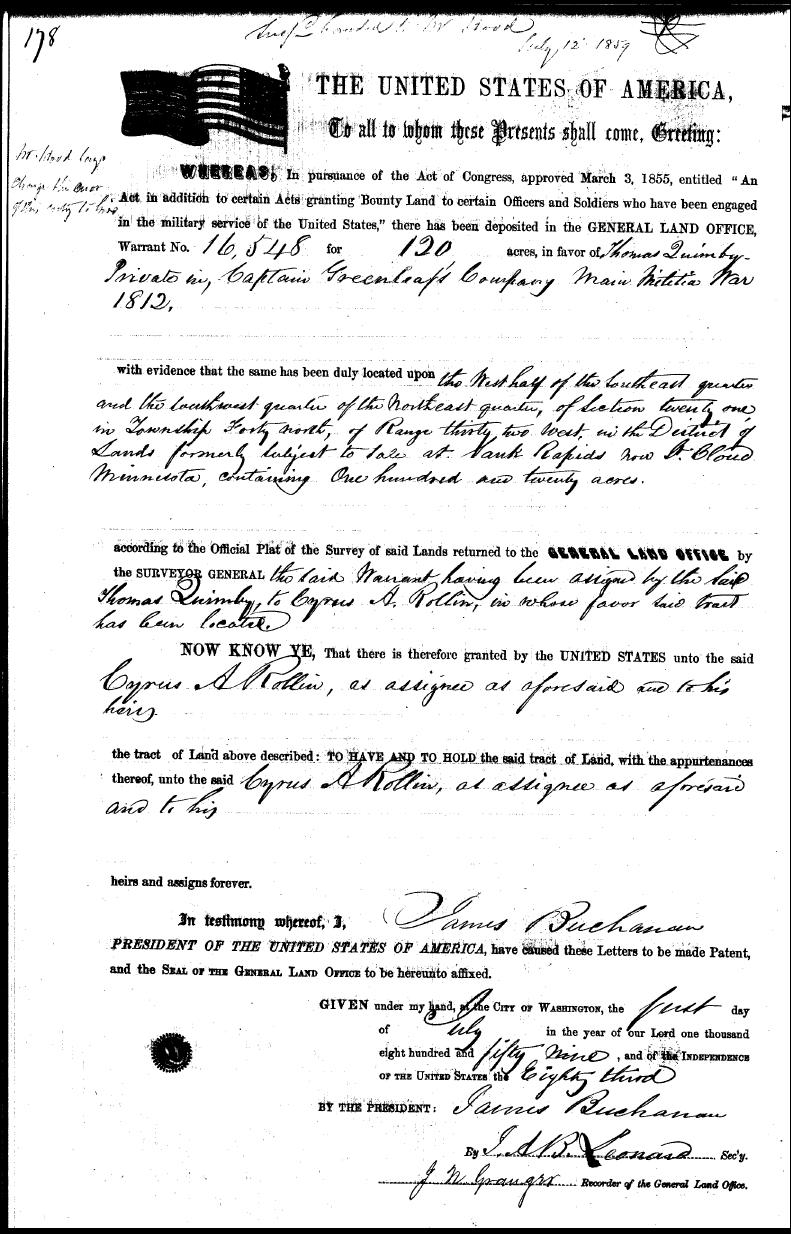 178
July 12 1859
THE UNITED STATES OF AMERICA,
To all to whom these Presents shall come, Greeting:
WHEREAS, In pursuance of the Act of Congress, approved March 3, 1855, entitled "An
Act in addition to certain Acts granting Bounty Land to certain Officers and Soldiers who have been engaged
in the military service of the United States," there has been deposited in the GENERAL LAND OFFICE,
Warrant No. 16,548 for 120 acres, in favor of Thomas Quimby
Private in, Captain Greenleaf's Company Main Militia War
1812.
with evidence that the same has been duly located upon the West half of the Southeast quarter
and the Southwest quarter of the Northeast quarter, of Section twenty one
in Township Forty north, of Range thirty two West, in the District of
Lands formerly Subject to Sale at Sauk Rapids now St. Cloud
Minnesota, containing One hundred and twenty acres.
according to the Official Plat of the Survey of said Lands returned to the GENERAL LAND OFFICE by
the SURVEYOR GENERAL the said Warrant having been assigned by the said
Thomas Quimby, to Cyrus A. Rollin, in whose favor said tract
has been located
NOW KNOW YE, That there is therefore granted by the UNITED STATES unto the said
Cyrus A Rollin, as assignee as aforesaid and to his
heirs
the tract of Land above described: TO HAVE AND TO HOLD the said tract of Land, with the appurtenances
thereof, unto the said Cyrus A Rollin, as assignee as aforesaid
and to his
heirs and assigns forever.
In testimony whereof, I, James Buchanan
PRESIDENT OF THE UNITED STATES OF AMERICA, have caused these Letters to be made Patent,
and the SEAL OF THE GENERAL LAND OFFICE to be hereunto affixed.
GIVEN under my hand, at the CITY OF WASHINGTON, the first day
of July in the year of our Lord one thousand
eight hundred and fifty nine, and of the INDEPENDENCE
OF THE UNITED STATES the Eighty third
BY THE PRESIDENT: James Buchanan
By J. A. B. Leonard Sec'y.
J N Granger Recorder of the General Land Office.